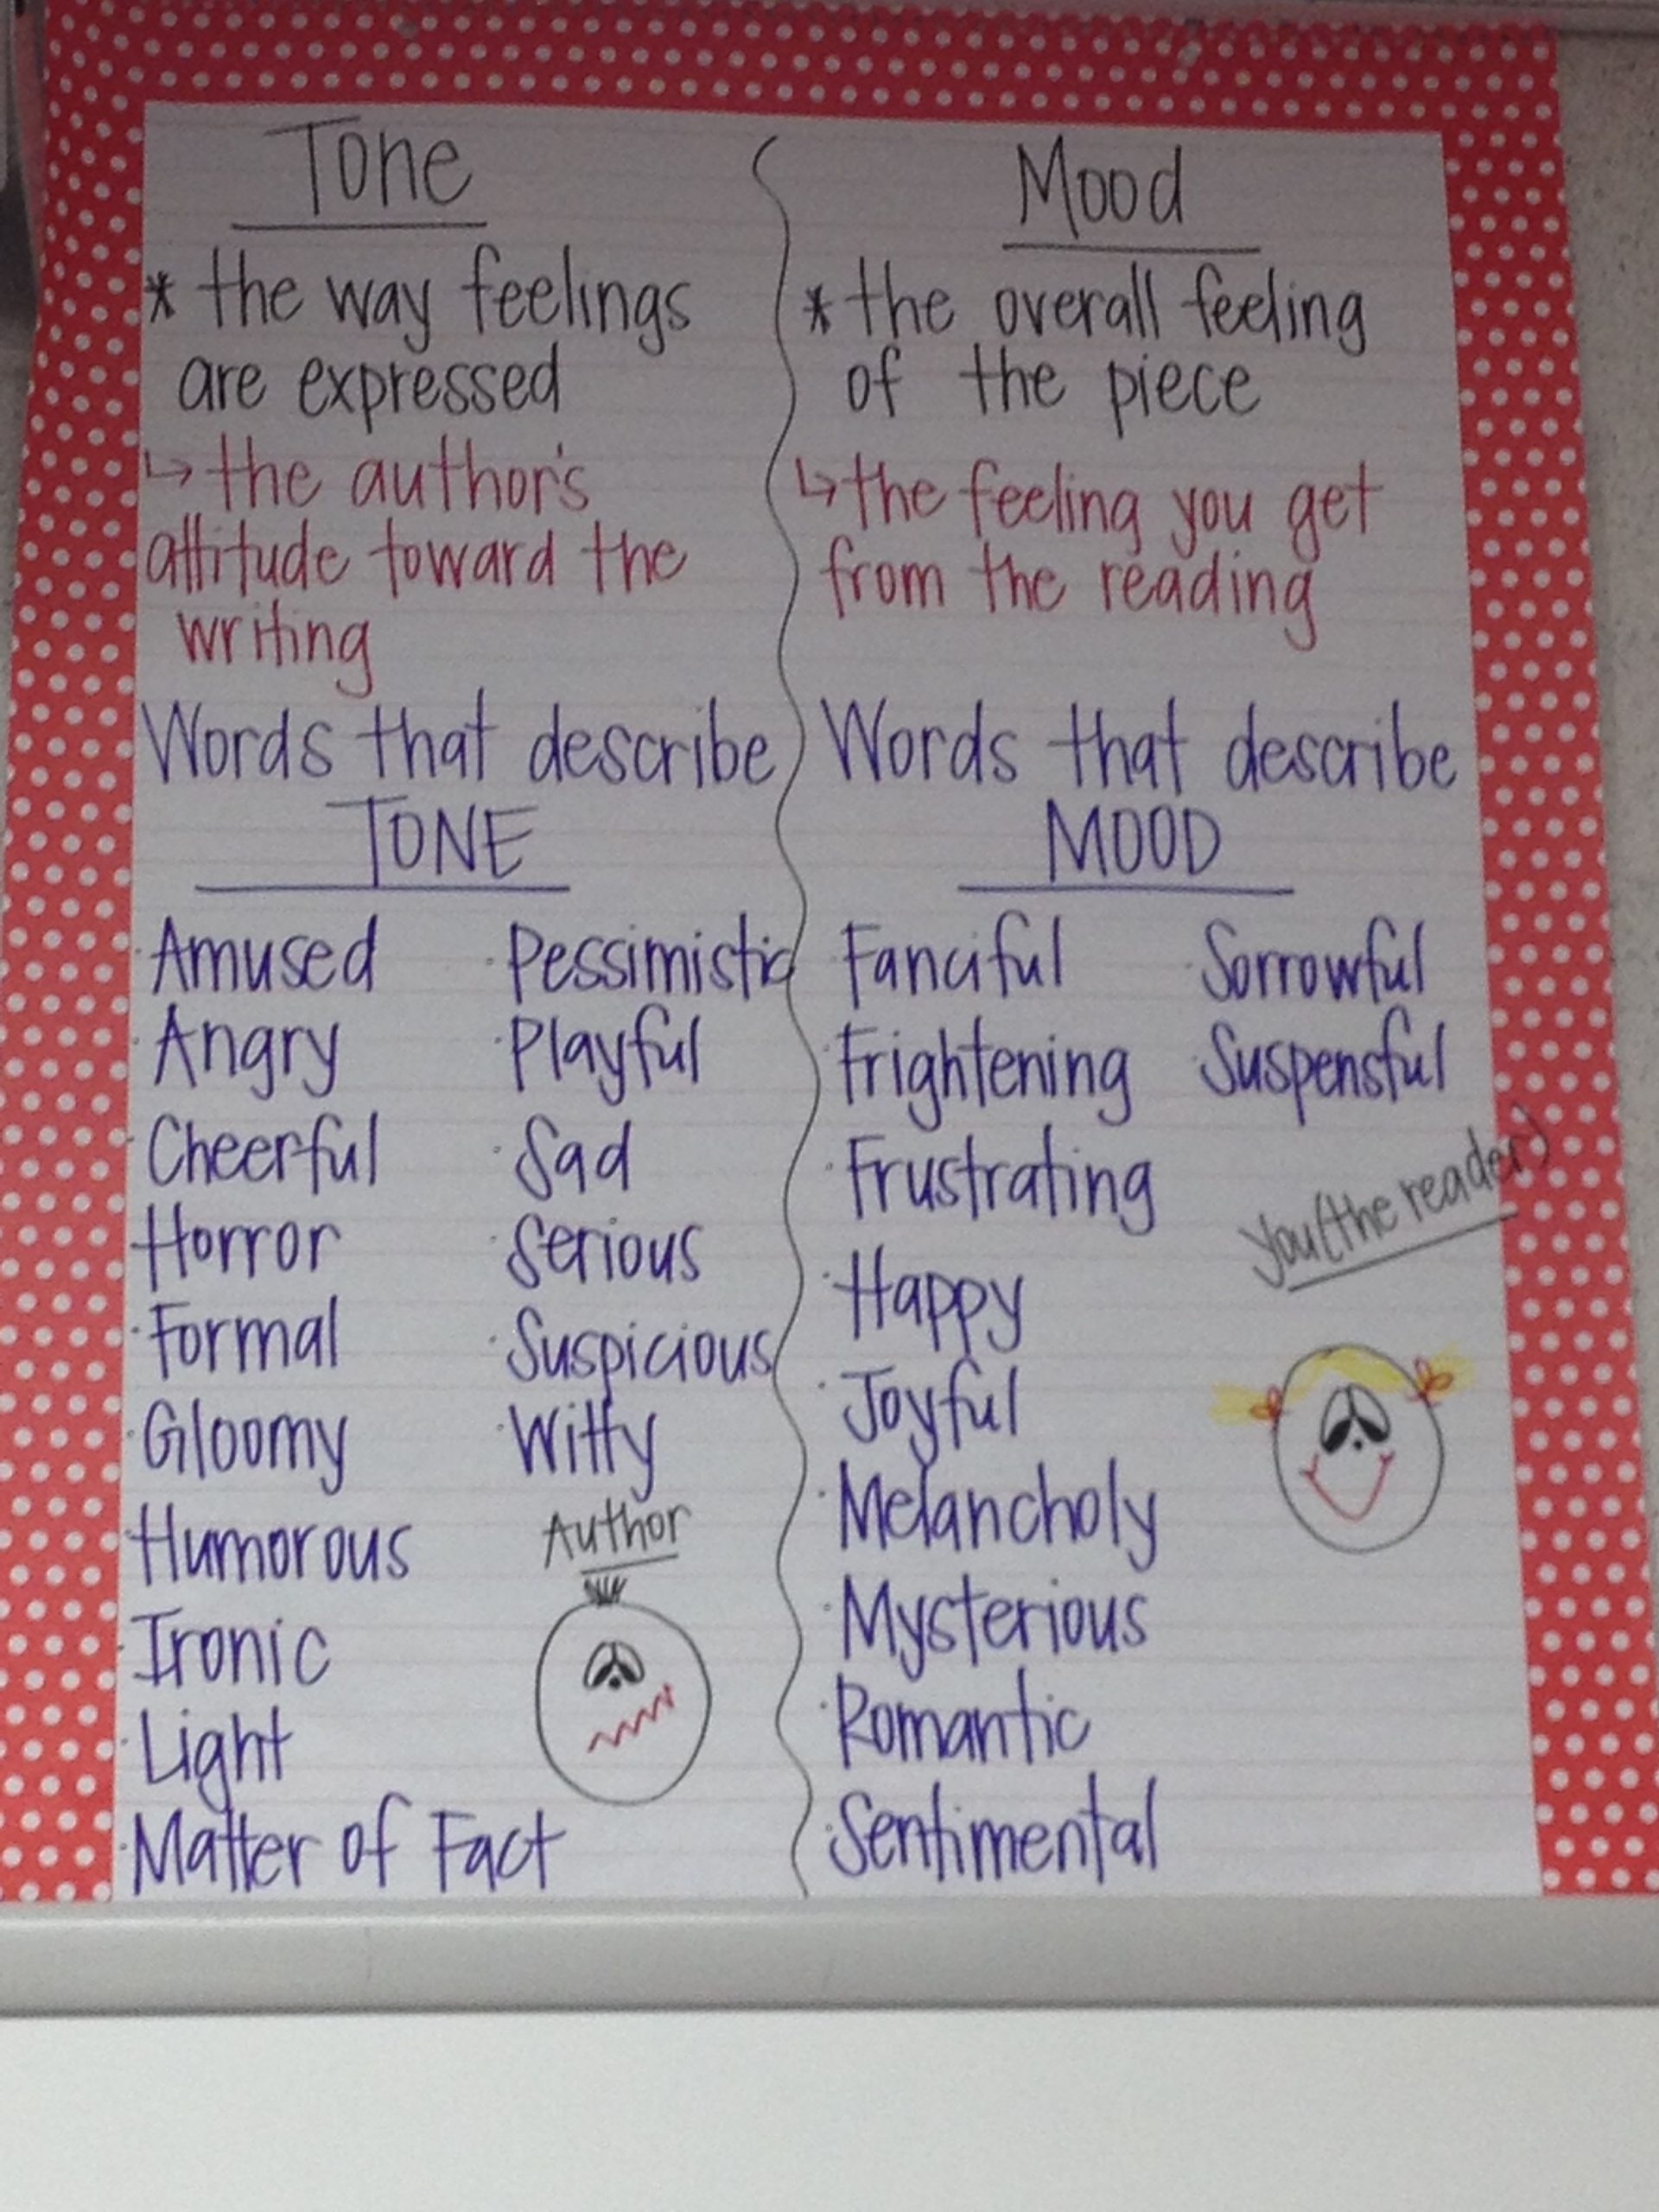 Tone
* the way feelings
are expressed
↳ the author's
attitude toward the
writing
Words that describe
TONE
· Amused
· Angry
· Cheerful
· Horror
· Formal
· Gloomy
· Humorous
· Ironic
· Light
· Matter of Fact
· Pessimistic
· Playful
· Sad
· Serious
· Suspicious
· Witty
Author
Mood
* the overall feeling
of the piece
↳ the feeling you get
from the reading
Words that describe
MOOD
· Fanciful
· Frightening
· Frustrating
· Happy
· Joyful
· Melancholy
· Mysterious
· Romantic
· Sentimental
· Sorrowful
· Suspensful
you (the reader)